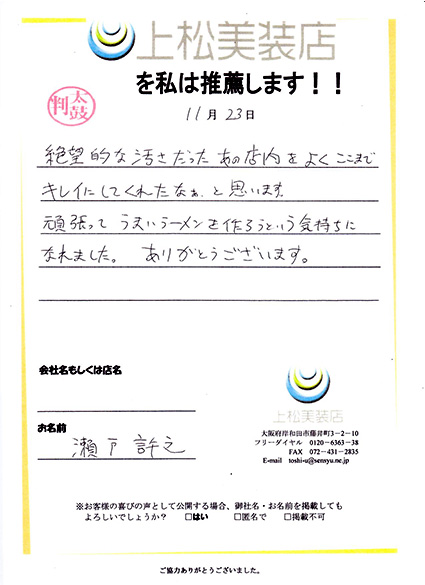 上松美装店
を私は推薦します！！
太鼓判
11月 23日
絶望的な汚さだった あの店内をよくここまで
キレイにしてくれたなぁ、と思います。
頑張って うまいラーメンを作ろうという気持ちに
なれました。 ありがとうございます。
会社名もしくは店名
上松美装店
お名前
瀬戸 許之
大阪府岸和田市藤井町3-2-10
フリーダイヤル 0120-6363-38
FAX 072-431-2835
E-mail toshi-u@sensyu.ne.jp
※お客様の喜びの声として公開する場合、御社名・お名前を掲載しても
よろしいでしょうか？ □はい □匿名で □掲載不可
ご協力ありがとうございました。